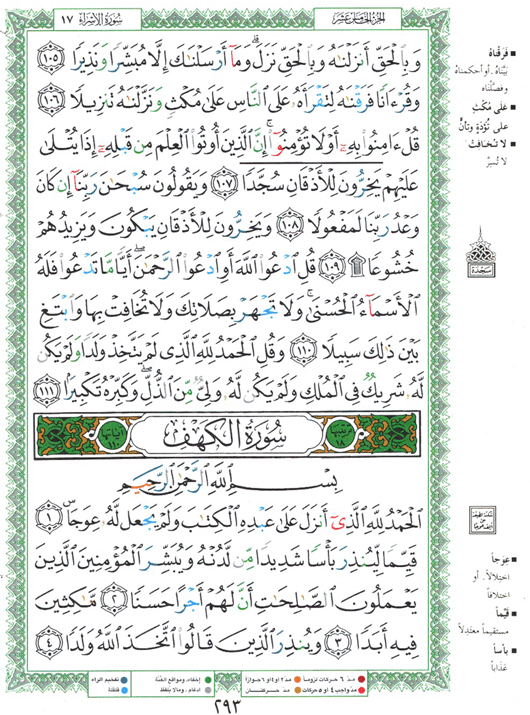 الجزء الخامس عشر
سورة الإسراء ١٧
وَبِالْحَقِّ أَنزَلْنَٰهُ وَبِالْحَقِّ نَزَلَ ۗ وَمَا أَرْسَلْنَٰكَ إِلَّا مُبَشِّرًا وَنَذِيرًا ١٠٥
وَقُرْءَانًا فَرَقْنَٰهُ لِتَقْرَأَهُ عَلَى النَّاسِ عَلَىٰ مُكْثٍ وَنَزَّلْنَٰهُ تَنزِيلًا ١٠٦
قُلْ ءَامِنُوا بِهِ أَوْ لَا تُؤْمِنُوا ۚ إِنَّ الَّذِينَ أُوتُوا الْعِلْمَ مِن قَبْلِهِ إِذَا يُتْلَىٰ
عَلَيْهِمْ يَخِرُّونَ لِلْأَذْقَانِ سُجَّدًا ١٠٧ وَيَقُولُونَ سُبْحَٰنَ رَبِّنَا إِن كَانَ
وَعْدُ رَبِّنَا لَمَفْعُولًا ١٠٨ وَيَخِرُّونَ لِلْأَذْقَانِ يَبْكُونَ وَيَزِيدُهُمْ
خُشُوعًا ۩ ١٠٩ قُلِ ادْعُوا اللَّهَ أَوِ ادْعُوا الرَّحْمَٰنَ ۖ أَيًّا مَّا تَدْعُوا فَلَهُ
الْأَسْمَاءُ الْحُسْنَىٰ ۚ وَلَا تَجْهَرْ بِصَلَاتِكَ وَلَا تُخَافِتْ بِهَا وَابْتَغِ
بَيْنَ ذَٰلِكَ سَبِيلًا ١١٠ وَقُلِ الْحَمْدُ لِلَّهِ الَّذِي لَمْ يَتَّخِذْ وَلَدًا وَلَمْ يَكُن
لَّهُ شَرِيكٌ فِي الْمُلْكِ وَلَمْ يَكُن لَّهُ وَلِيٌّ مِّنَ الذُّلِّ ۖ وَكَبِّرْهُ تَكْبِيرًا ١١١
ترتيبها ١٨ سُورَةُ الْكَهْفِ آياتها ١١٠
بِسْمِ اللَّهِ الرَّحْمَٰنِ الرَّحِيمِ
الْحَمْدُ لِلَّهِ الَّذِي أَنزَلَ عَلَىٰ عَبْدِهِ الْكِتَٰبَ وَلَمْ يَجْعَل لَّهُ عِوَجَا ۜ ١
قَيِّمًا لِّيُنذِرَ بَأْسًا شَدِيدًا مِّن لَّدُنْهُ وَيُبَشِّرَ الْمُؤْمِنِينَ الَّذِينَ
يَعْمَلُونَ الصَّٰلِحَٰتِ أَنَّ لَهُمْ أَجْرًا حَسَنًا ٢ مَّٰكِثِينَ
فِيهِ أَبَدًا ٣ وَيُنذِرَ الَّذِينَ قَالُوا اتَّخَذَ اللَّهُ وَلَدًا ٤
■ فَرَقْنَاهُ
بيّنّاه. أو أحكمناه
وفصّلناه
■ عَلَى مُكْثٍ
على تُؤَدَةٍ وتأنٍّ
■ لا تُخَافِتْ
لا تُسِرَّ
سجدة
■ عِوَجاً
اختلالاً. أو
اختلافاً
■ قَيِّماً
مستقيماً معتدلاً
■ بأساً
عذاباً
مدّ ٦ حركات لزوماً
مدّ ٢ أو ٤ أو ٦ جوازاً
إخفاء، ومواقع الغُنَّة
تفخيم الراء
مدّ واجب ٤ أو ٥ حركات
مدّ حركتان
إدغام، وما لا يُلفظ
قلقلة
٢٩٣